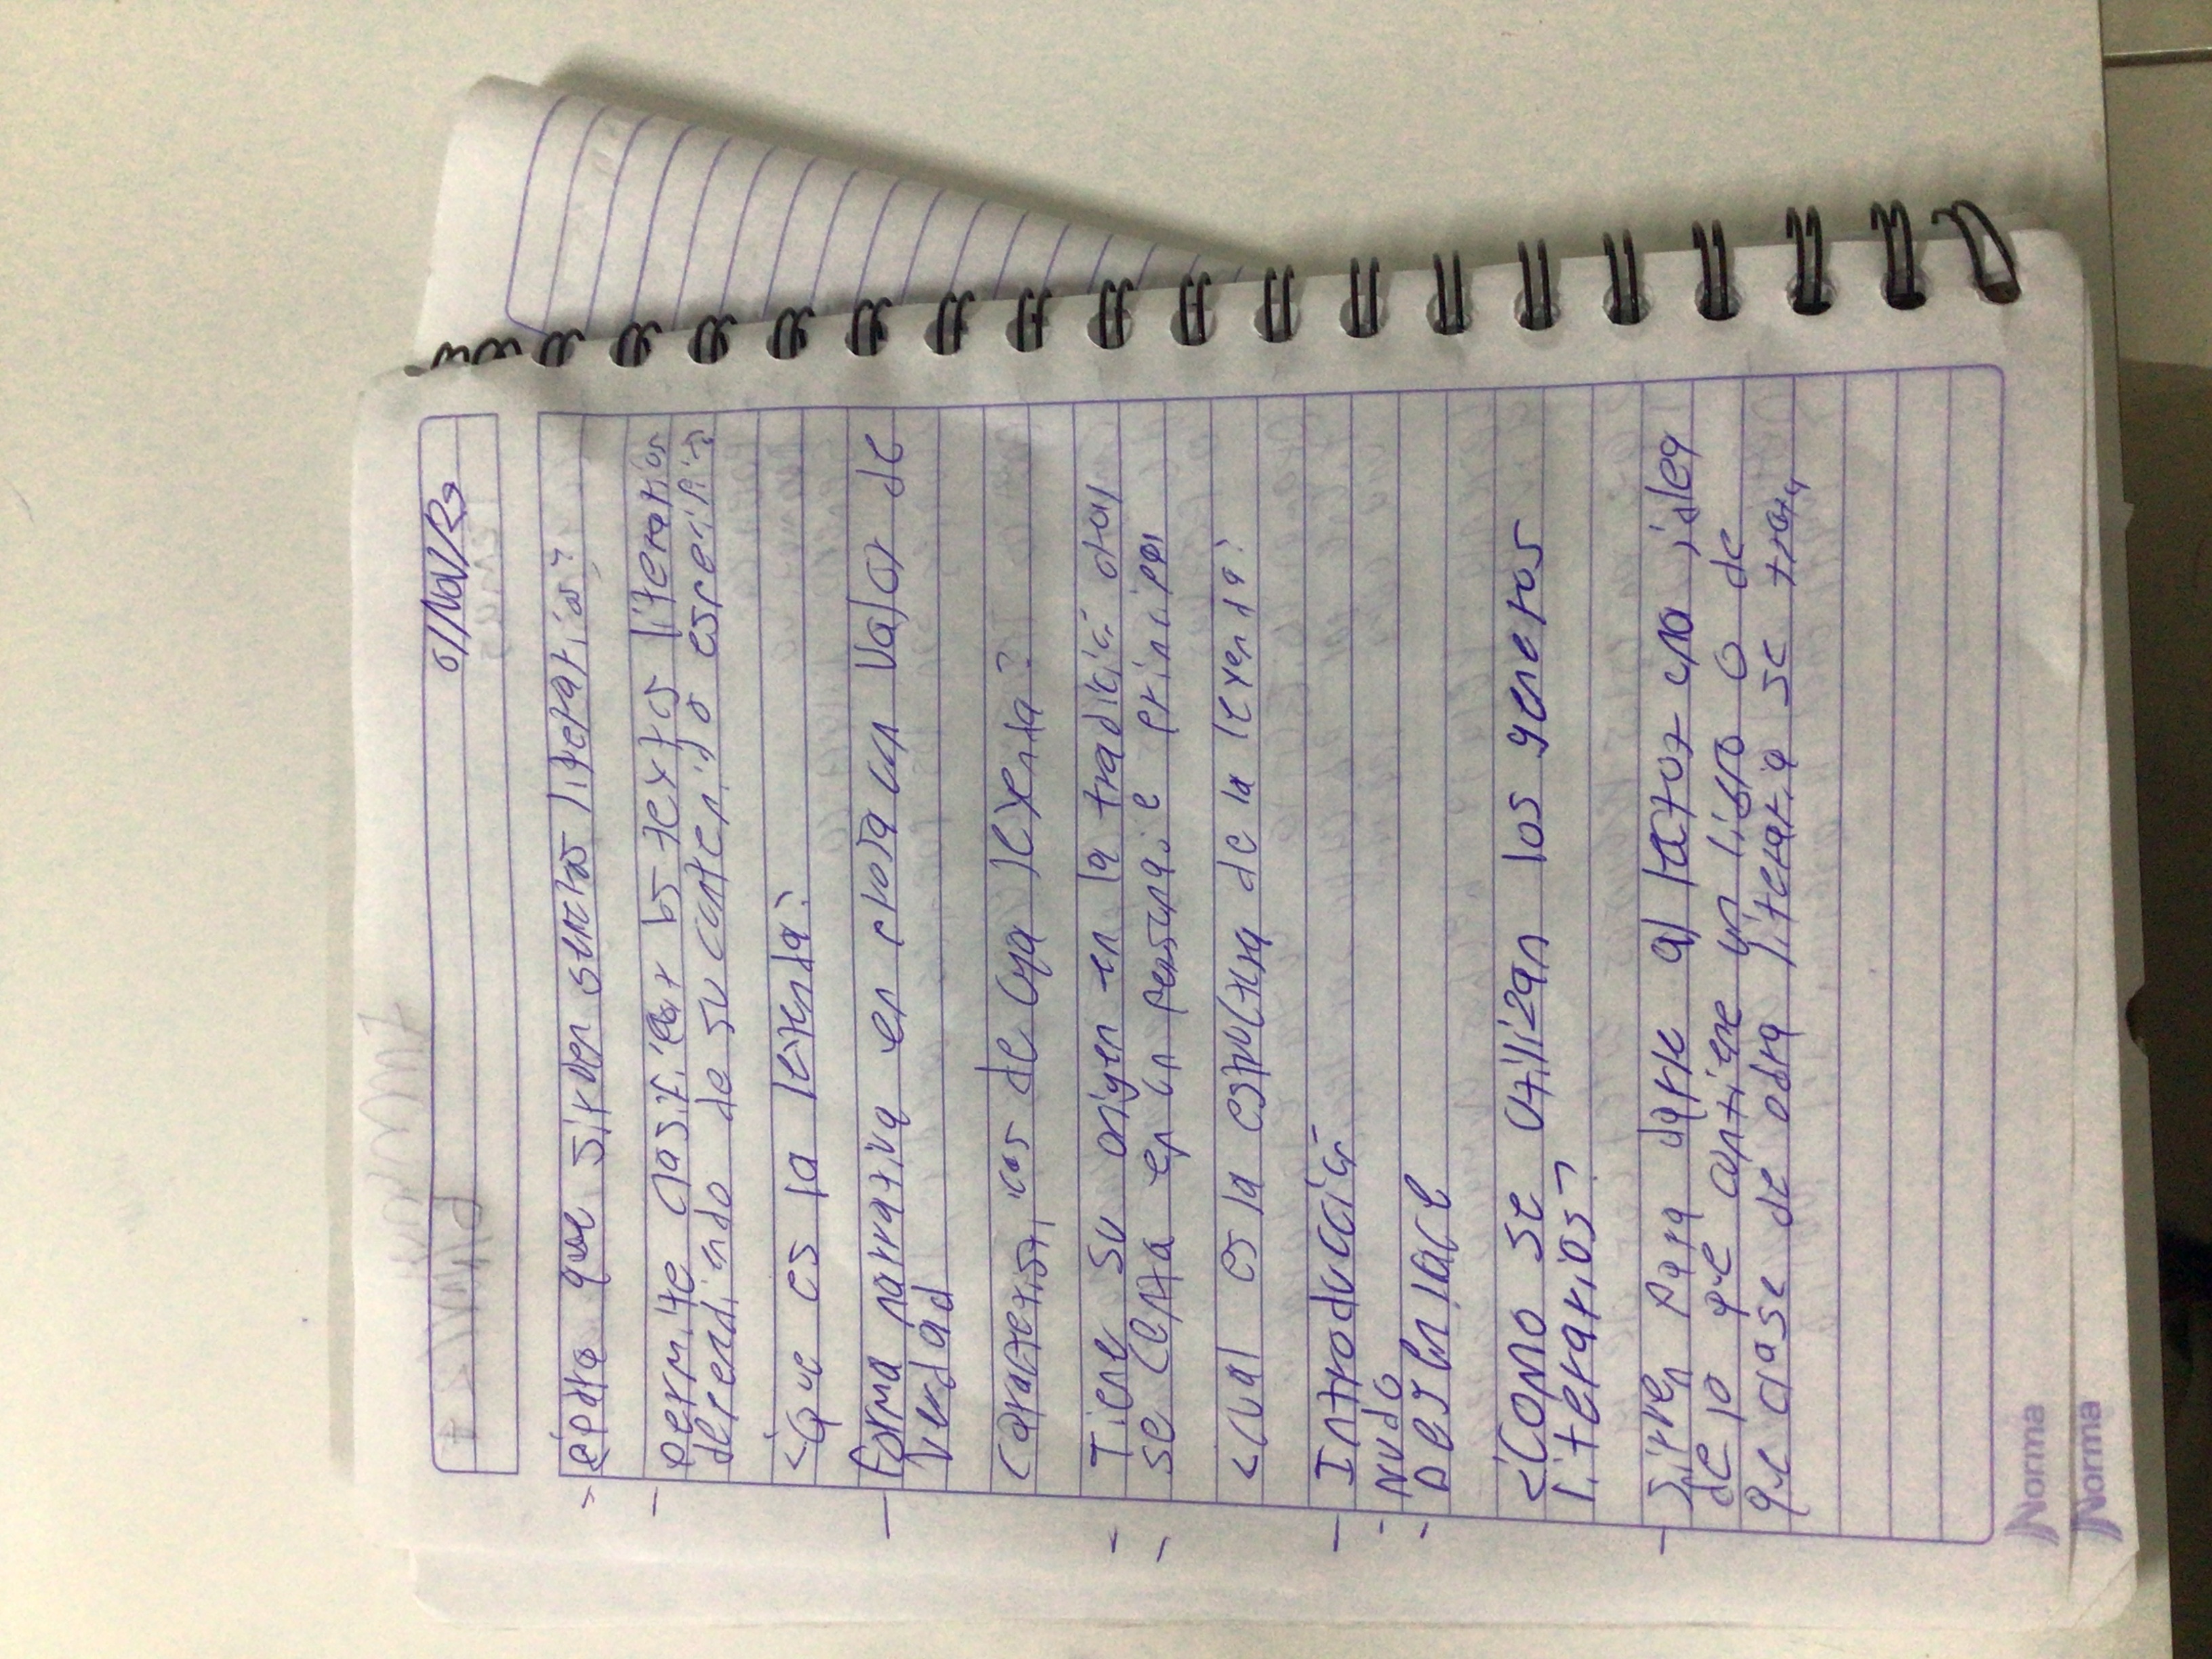 ¿para que sirven generos literarios?
- permite clasificar los textos literarios
dependiendo de su contenido especifico
¿que es la leyenda?
- Forma narrativa en prosa con valor de
verdad
Caracteristicas de una leyenda?
- Tiene su origen en la tradición oral
- se centra en un personaje principal
¿cual es la estructura de la leyenda?
- Introducción
- nudo
- Desenlace
¿Como se utilizan los generos
literarios?
- Sirven para darle al lector una idea
de lo que contiene un libro o de
que clase de obra literaria se trata
Norma
Norma